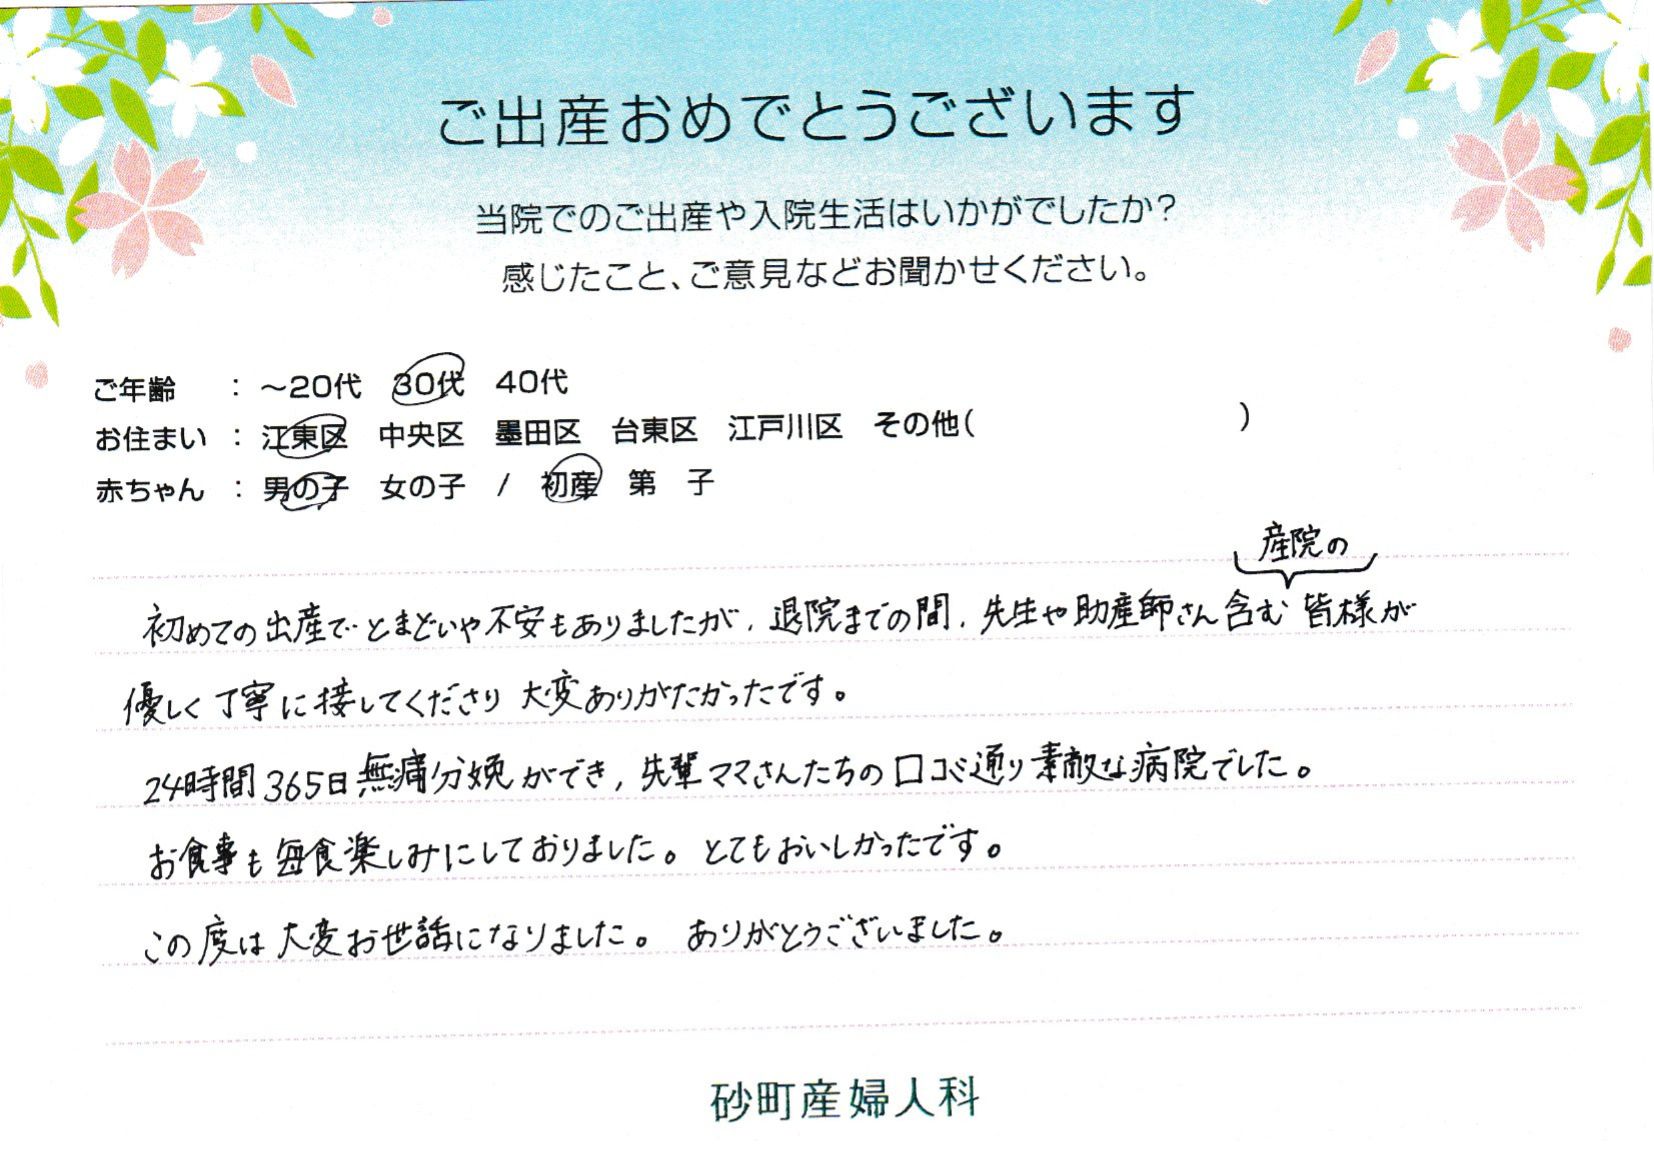 ご出産おめでとうございます
当院でのご出産や入院生活はいかがでしたか？
感じたこと、ご意見などお聞かせください。
ご年齢 ： ～20代 30代 40代
お住まい ： 江東区 中央区 墨田区 台東区 江戸川区 その他( )
赤ちゃん ： 男の子 女の子 / 初産 第 子
産院の
初めての出産でとまどいや不安もありましたが、退院までの間、先生や助産師さん含む 皆様が
優しく丁寧に接してくださり 大変ありがたかったです。
24時間365日無痛分娩ができ、先輩ママさんたちの口コミ通り素敵な病院でした。
お食事も毎食楽しみにしておりました。とてもおいしかったです。
この度は大変お世話になりました。 ありがとうございました。
砂町産婦人科